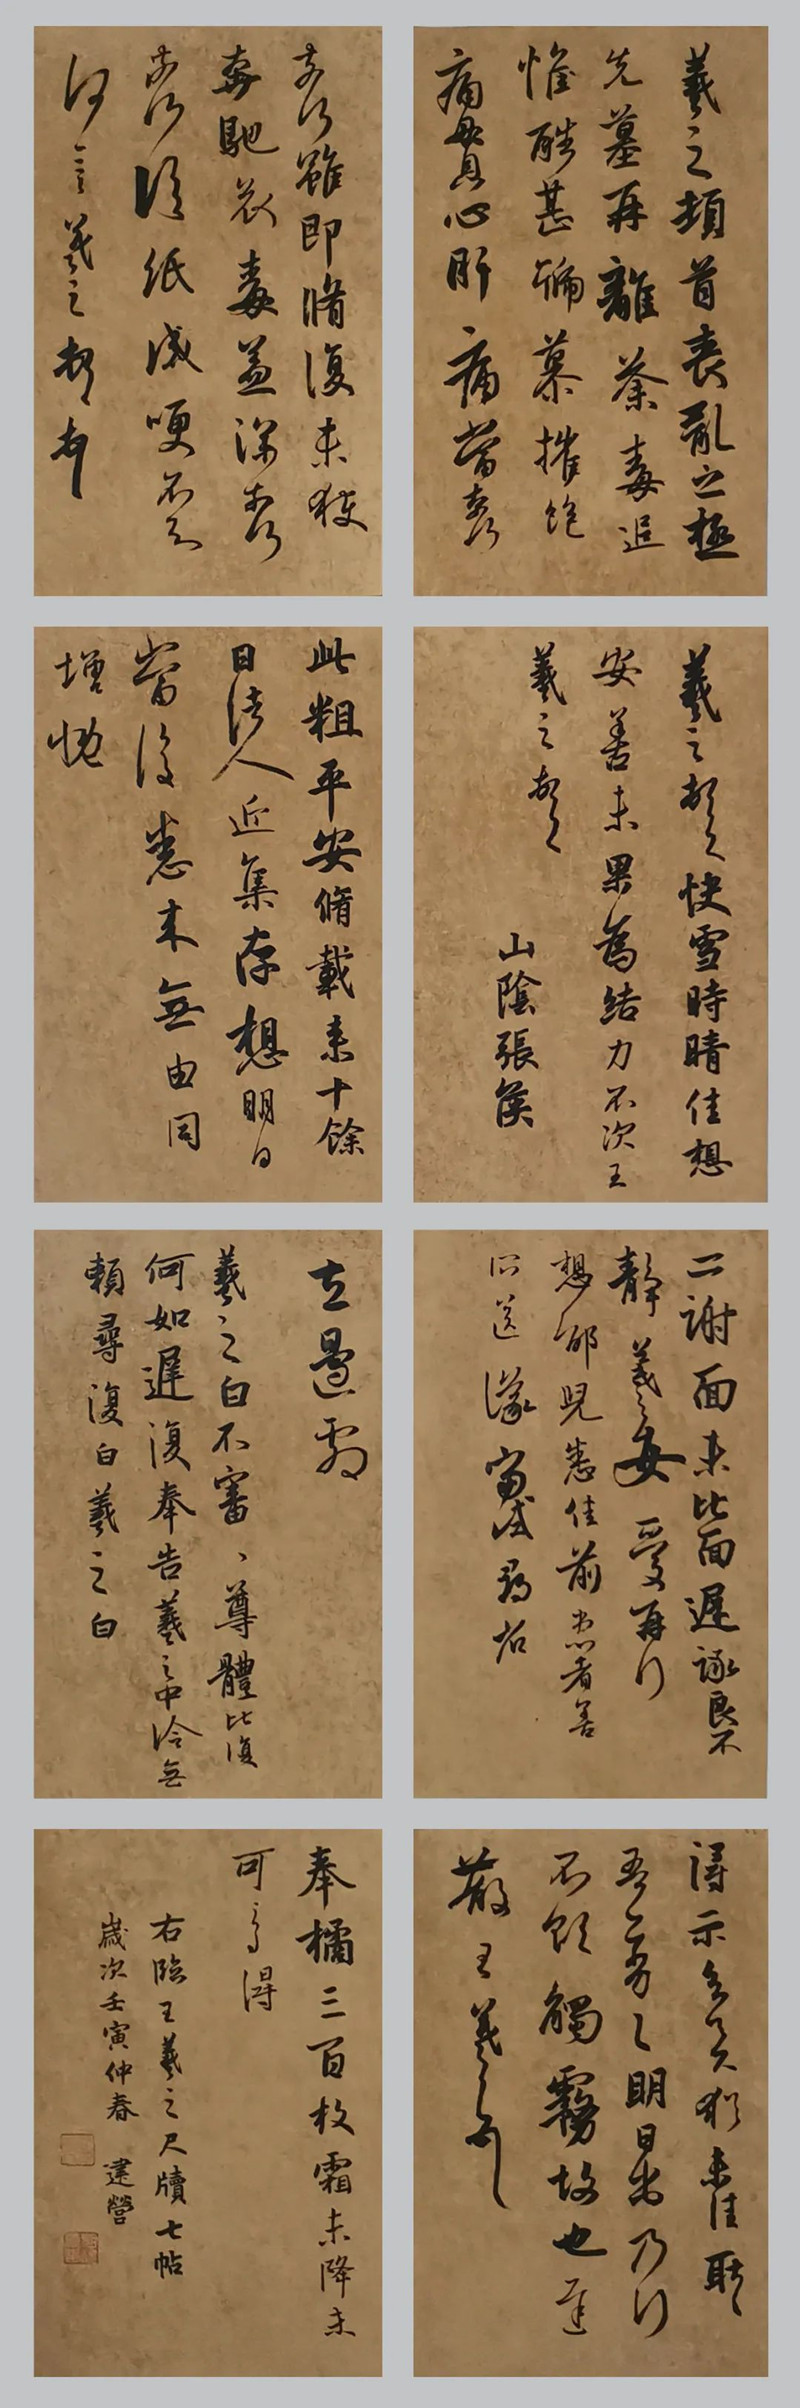 羲之頓首喪亂之極
先墓再離荼毒追
惟酷甚號慕摧絕
痛貫心肝痛當奈何
奈何雖即脩復未獲
奔馳哀毒益深奈何
奈何臨紙感哽不知
何言羲之頓首頓首
羲之頓首快雪時晴佳想
安善未果為結力不次王
羲之頓首
山陰張侯
此粗平安脩載來十餘
日諸人近集存想明日
當復悉來無由同
增慨
二謝面未比面遲詠良不
靜羲之女愛再拜
想邰兒悉佳前患者善
所送議當試尋省
左邊劇
羲之白不審、尊體比復
何如遲復奉告羲之中冷無
賴尋復白羲之白
得示知足下猶未佳耿耿
吾亦劣劣明日出乃行
不欲觸霧故也遲
散王羲之頓首
奉橘三百枚霜未降未
可多得
右臨王羲之尺牘七帖
歲次壬寅仲春 建營